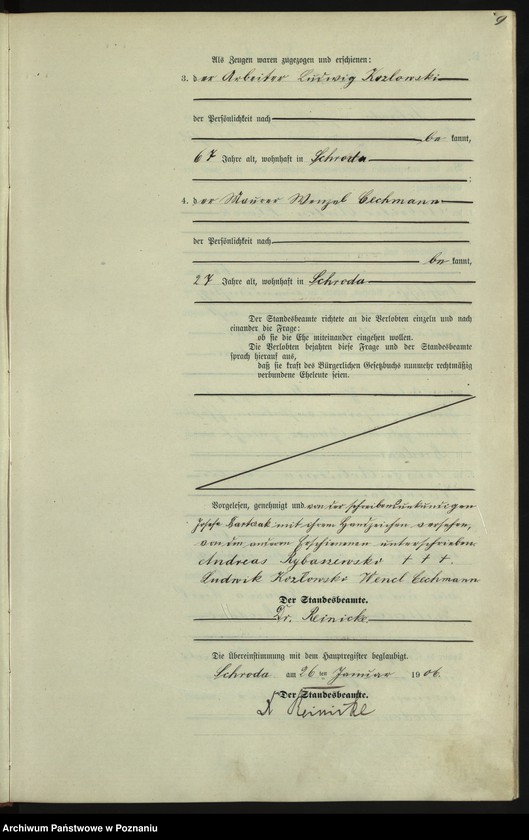 9
Als Zeugen waren zugezogen und erschienen:
3. der Arbeiter Ludwig Kozlowski
der Persönlichkeit nach
be kannt,
67 Jahre alt, wohnhaft in Schroda
;
4. der Maurer Wenzel Cechmann
der Persönlichkeit nach
be kannt,
27 Jahre alt, wohnhaft in Schroda
Der Standesbeamte richtete an die Verlobten einzeln und nach
einander die Frage:
ob sie die Ehe miteinander eingehen wollen.
Die Verlobten bejahten diese Frage und der Standesbeamte
sprach hierauf aus,
daß sie kraft des Bürgerlichen Gesetzbuchs nunmehr rechtmäßig
verbundene Eheleute seien.
Vorgelesen, genehmigt und von der schreibensunkundigen
Josefa Bartczak mit ihrem Handzeichen versehen,
von den anderen Erschienenen unterschrieben
Andreas Rybaszewski + + +.
Ludwik Kozłowski Wencl Cechmann
Der Standesbeamte.
Dr. Reinicke
Die Übereinstimmung mit dem Hauptregister beglaubigt.
Schroda am 26ten Januar 1906.
Der Standesbeamte.
Reinicke
Archiwum Państwowe w Poznaniu